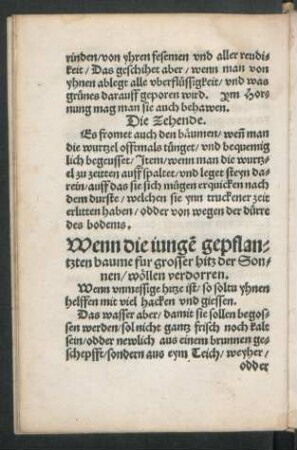 rinden/von yhren fesemen vnd aller reudi-
keit/Das geschihet aber/wenn man von
yhnen ablegt alle vberflüssigkeit/vnd was
grünes darauff geporen wird. Ym Hor-
nung mag man sie auch behawen.
Die Zehende.
Es fromet auch den bäumen/weñ man
die wurtzel offtmals tünget/vnd bequemig
lich begeusset/Jtem/wenn man die wurtz-
el zu zeitten auff spaltet/vnd leget steyn da-
rein/auff das sie sich mügen erquicken nach
dem durste/welchen sie ynn truckener zeit
erlitten haben/odder von wegen der dürre
des bodems.
Wenn die iungẽ gepflan-
tzten baume fur grosser hitz der Son-
nen/wöllen verdorren.
Wenn vnmessige hitze ist/so soltu yhnen
helffen mit viel hacken vnd giessen.
Das wasser aber/damit sie sollen begos-
sen werden/sol nicht gantz frisch noch kalt
sein/odder newlich aus einem brunnen ge-
schepfft/sondern aus eym Teich/weyher/
odder